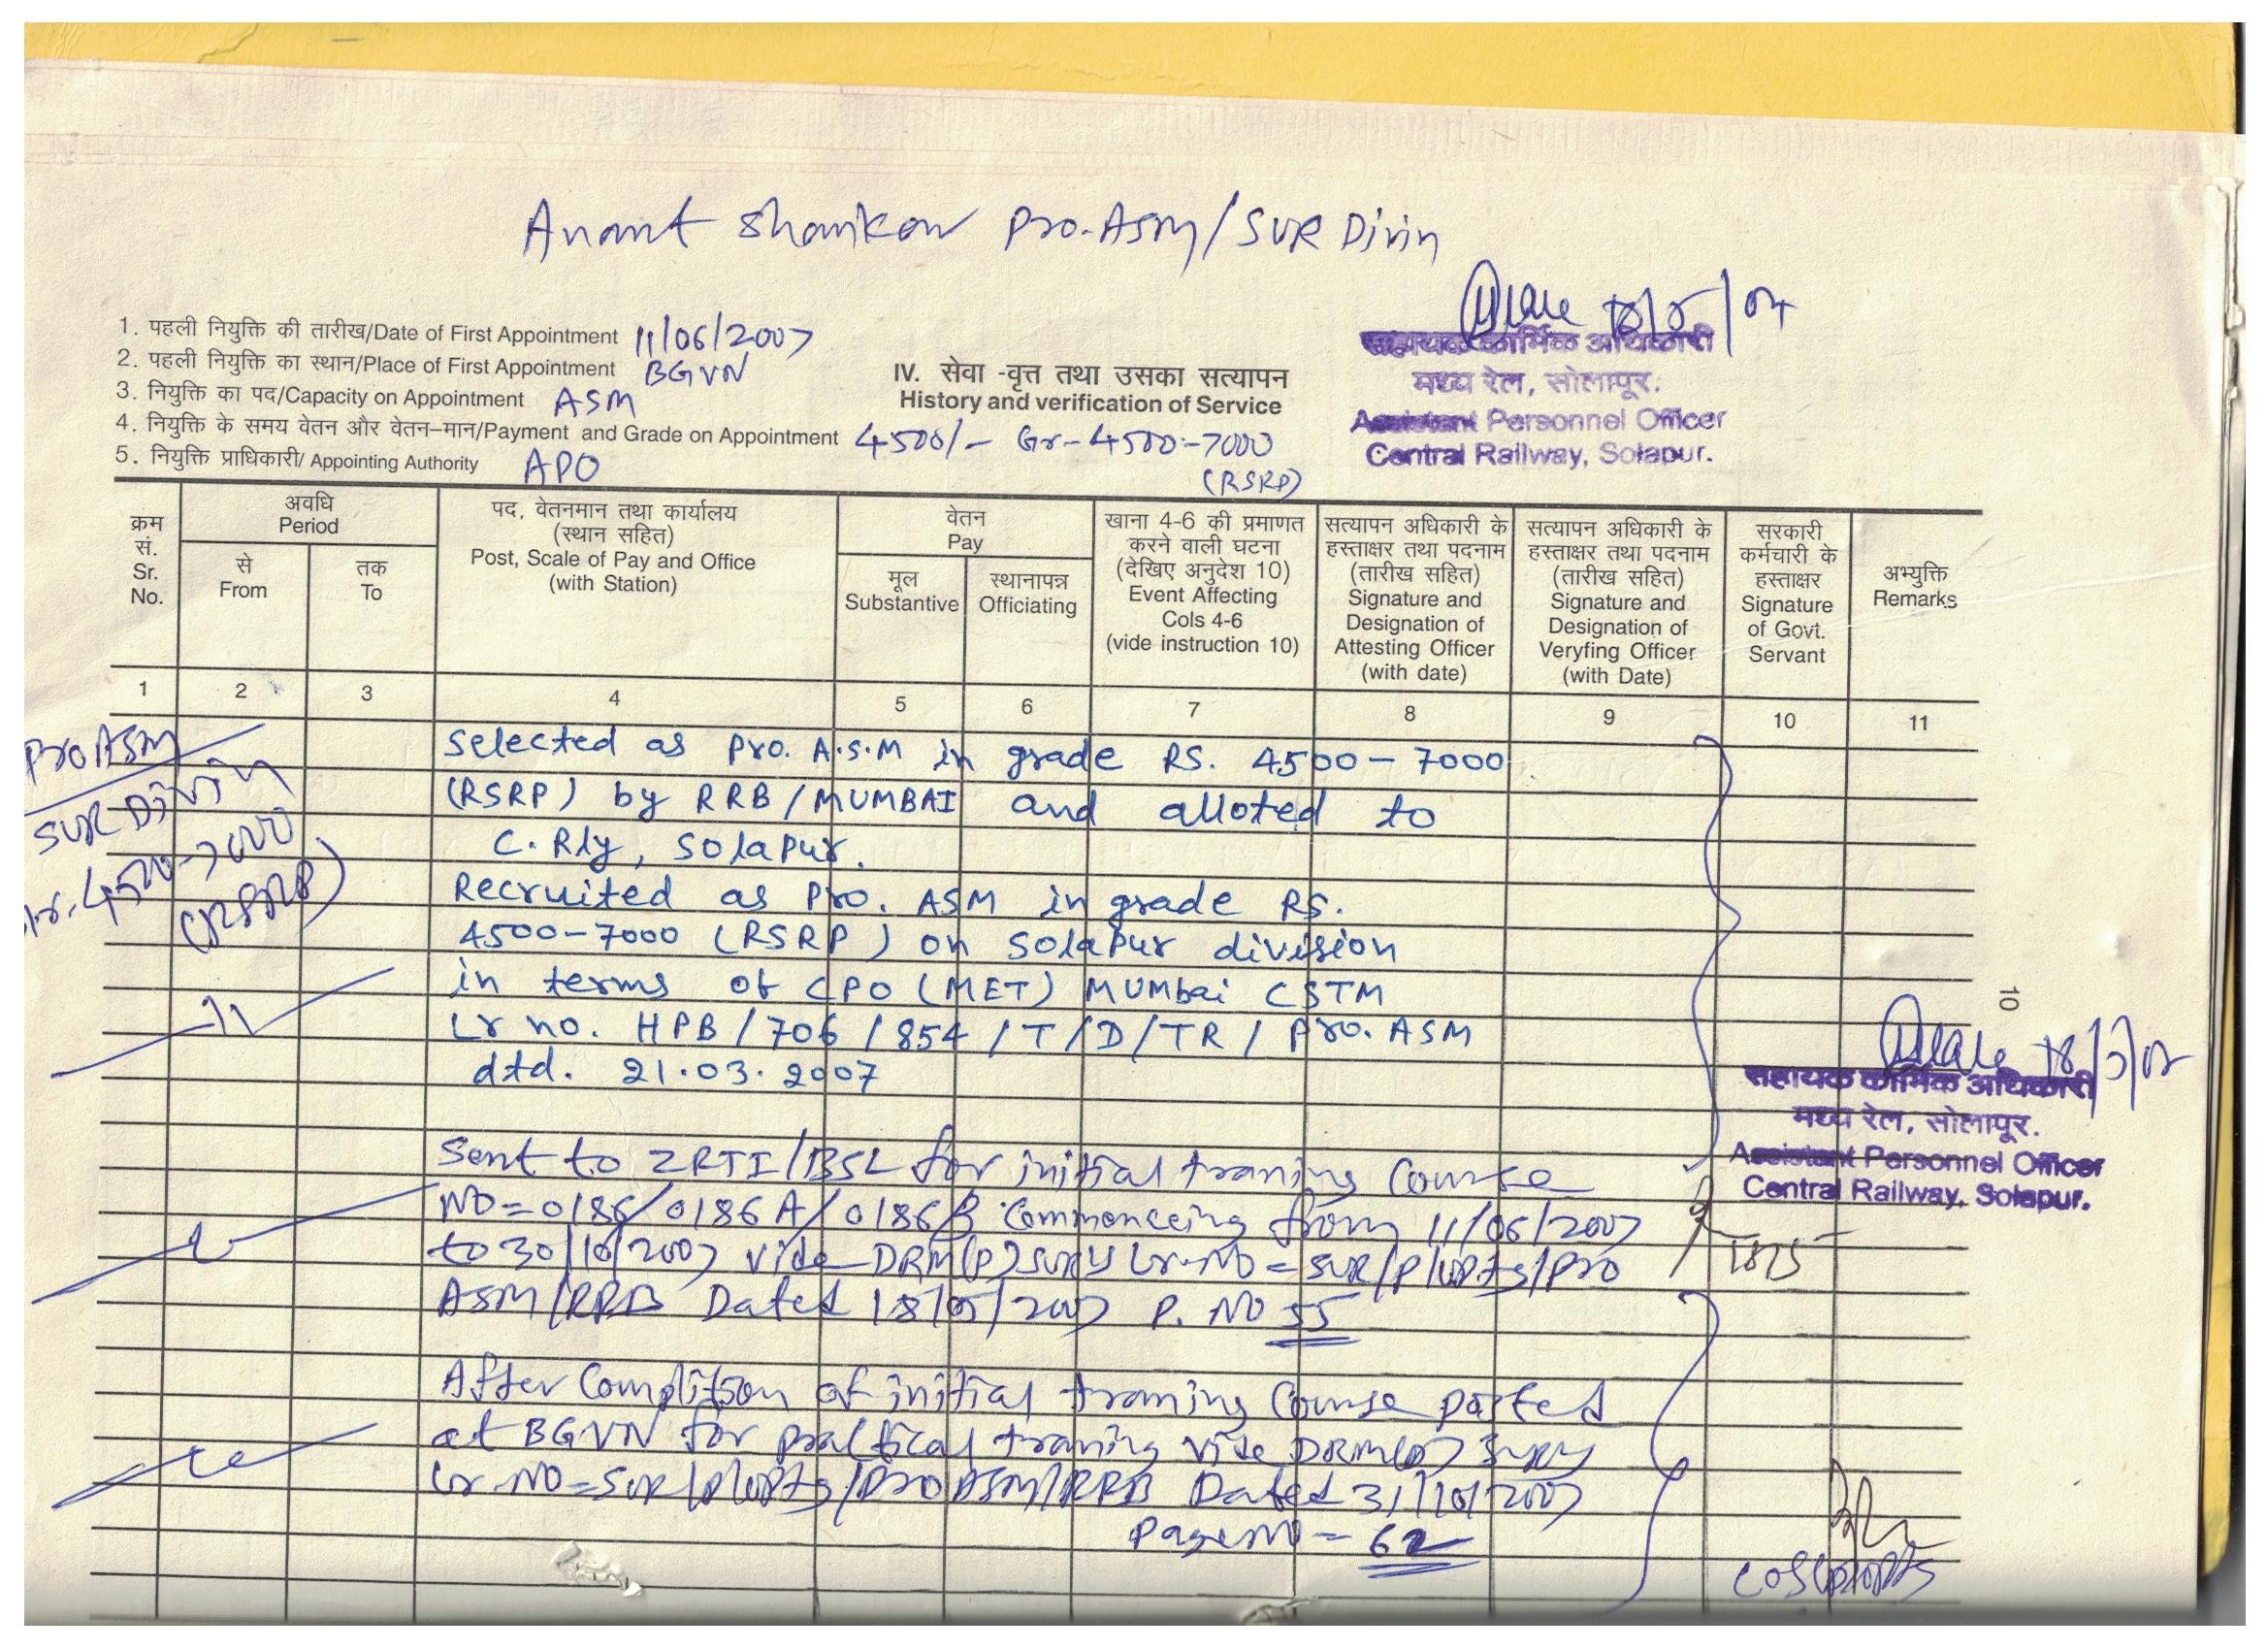 Anant Shankar Pro.ASM/SUR Divin
1. पहली नियुक्ति की तारीख/Date of First Appointment 11/06/2007
2. पहली नियुक्ति का स्थान/Place of First Appointment BGVN
3. नियुक्ति का पद/Capacity on Appointment ASM
4. नियुक्ति के समय वेतन और वेतन-मान/Payment and Grade on Appointment 4500/- Gr-4500-7000
(RSRP)
5. नियुक्ति प्राधिकारी/ Appointing Authority APO
IV. सेवा -वृत्त तथा उसका सत्यापन
History and verification of Service
सहायक कार्मिक अधिकारी
मध्य रेल, सोलापूर.
Assistant Personnel Officer
Central Railway, Solapur.
क्रम सं. Sr. No.
अवधि Period
से From
तक To
पद, वेतनमान तथा कार्यालय
(स्थान सहित)
Post, Scale of Pay and Office
(with Station)
वेतन Pay
मूल Substantive
स्थानापन्न Officiating
खाना 4-6 की प्रमाणत
करने वाली घटना
(देखिए अनुदेश 10)
Event Affecting
Cols 4-6
(vide instruction 10)
सत्यापन अधिकारी के
हस्ताक्षर तथा पदनाम
(तारीख सहित)
Signature and
Designation of
Attesting Officer
(with date)
सत्यापन अधिकारी के
हस्ताक्षर तथा पदनाम
(तारीख सहित)
Signature and
Designation of
Veryfing Officer
(with Date)
सरकारी
कर्मचारी के
हस्ताक्षर
Signature
of Govt.
Servant
अभ्युक्ति
Remarks
1 2 3 4 5 6 7 8 9 10 11
Pro ASM
SUR Divin
Gr. 4500-7000
(RSRP)
Selected as Pro. A.S.M in grade RS. 4500-7000
(RSRP) by RRB/MUMBAI and alloted to
C. Rly, Solapur.
Recruited as Pro. ASM in grade RS.
4500-7000 (RSRP) on Solapur division
in terms of CPO (MET) MUMbai CSTM
Lr no. HPB/706/854/T/D/TR/Pro. ASM
dtd. 21.03.2007
10
सहायक कार्मिक अधिकारी
मध्य रेल, सोलापूर.
Assistant Personnel Officer
Central Railway, Solapur.
Sent to ZRTI/BSL for initial traning Course
NO=0186/0186A/0186B Commenceing from 11/06/2007
to 30/10/2007 vide DRM(P)SUR's Lr.NO=SUR/P/Optg/Pro
ASM/RRB Dated 18/05/2007 P. NO 55
After Complition of initial traning Course posted
at BGVN for practical traning vide DRM(P) SUR's
Lr.NO=SUR/P/Optg/Pro ASM/RRB Dated 31/10/2007
Page NO = 62